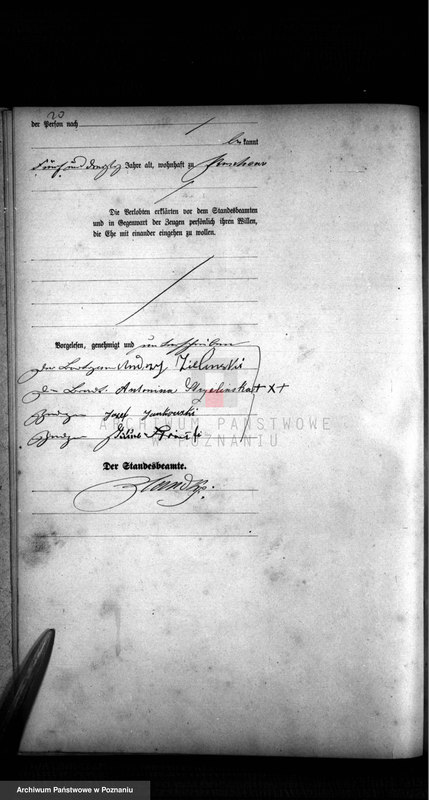 20
der Person nach
be kannt
fünf und dreißig Jahre alt, wohnhaft zu
Die Verlobten erklärten vor dem Standesbeamten
und in Gegenwart der Zeugen persönlich ihren Willen,
die Ehe mit einander eingehen zu wollen.
Vorgelesen, genehmigt und unterschrieben
Zielinski
Die Braut. Antonina +X+
ARCHIWUM PAŃSTWOWE
W POZNANIU
Josef Jankowski
Der Standesbeamte.
Archiwum Państwowe w Poznaniu